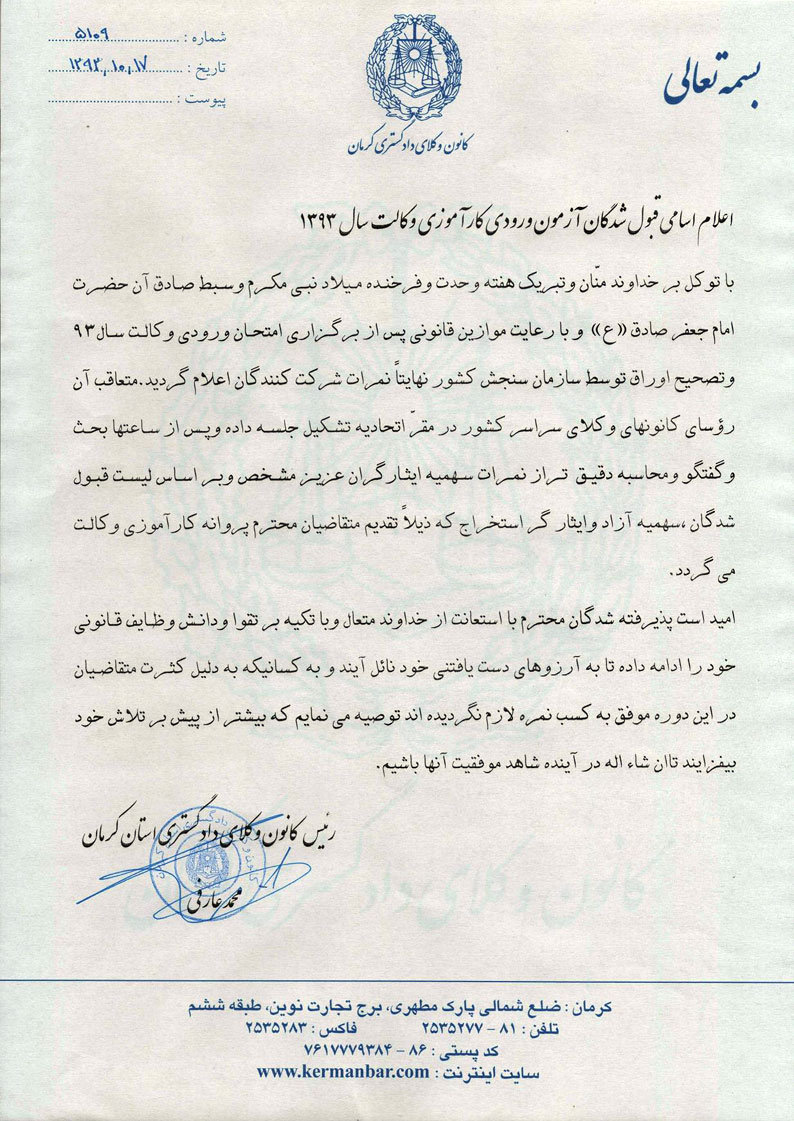 بسمه تعالی
شماره : ۵۱۰۹
تاریخ : ۱۳۹۳,۱۰,۱۷
پیوست :
کانون وکلای دادگستری کرمان
اعلام اسامی قبول شدگان آزمون ورودی کارآموزی وکالت سال ۱۳۹۳
با توکل بر خداوند منّان وتبریک هفته وحدت وفرخنده میلاد نبی مکرم وسبط صادق آن حضرت
امام جعفر صادق «ع» و با رعایت موازین قانونی پس از برگزاری امتحان ورودی وکالت سال ۹۳
وتصحیح اوراق توسط سازمان سنجش کشور نهایتاً نمرات شرکت کنندگان اعلام گردید.متعاقب آن
رؤسای کانونهای وکلای سراسر کشور در مقرّ اتحادیه تشکیل جلسه داده وپس از ساعتها بحث
وگفتگو ومحاسبه دقیق تراز نمرات سهمیه ایثارگران عزیز مشخص وبر اساس لیست قبول
شدگان ،سهمیه آزاد وایثار گر استخراج که ذیلاً تقدیم متقاضیان محترم پروانه کارآموزی وکالت
می گردد.
امید است پذیرفته شدگان محترم با استعانت از خداوند متعال وبا تکیه بر تقوا ودانش وظایف قانونی
خود را ادامه داده تا به آرزوهای دست یافتنی خود نائل آیند و به کسانیکه به دلیل کثرت متقاضیان
در این دوره موفق به کسب نمره لازم نگردیده اند توصیه می نمایم که بیشتر از پیش بر تلاش خود
بیفزایند تاان شاء اله در آینده شاهد موفقیت آنها باشیم.
رئیس کانون وکلای دادگستری استان کرمان
محمد عارفی
کرمان : ضلع شمالی پارک مطهری، برج تجارت نوین، طبقه ششم
تلفن : ۸۱ - ۲۵۳۵۲۷۷ فاکس : ۲۵۳۵۲۸۳
کد پستی : ۸۶ - ۷۶۱۷۷۷۹۳۸۴
سایت اینترنت : www.kermanbar.com